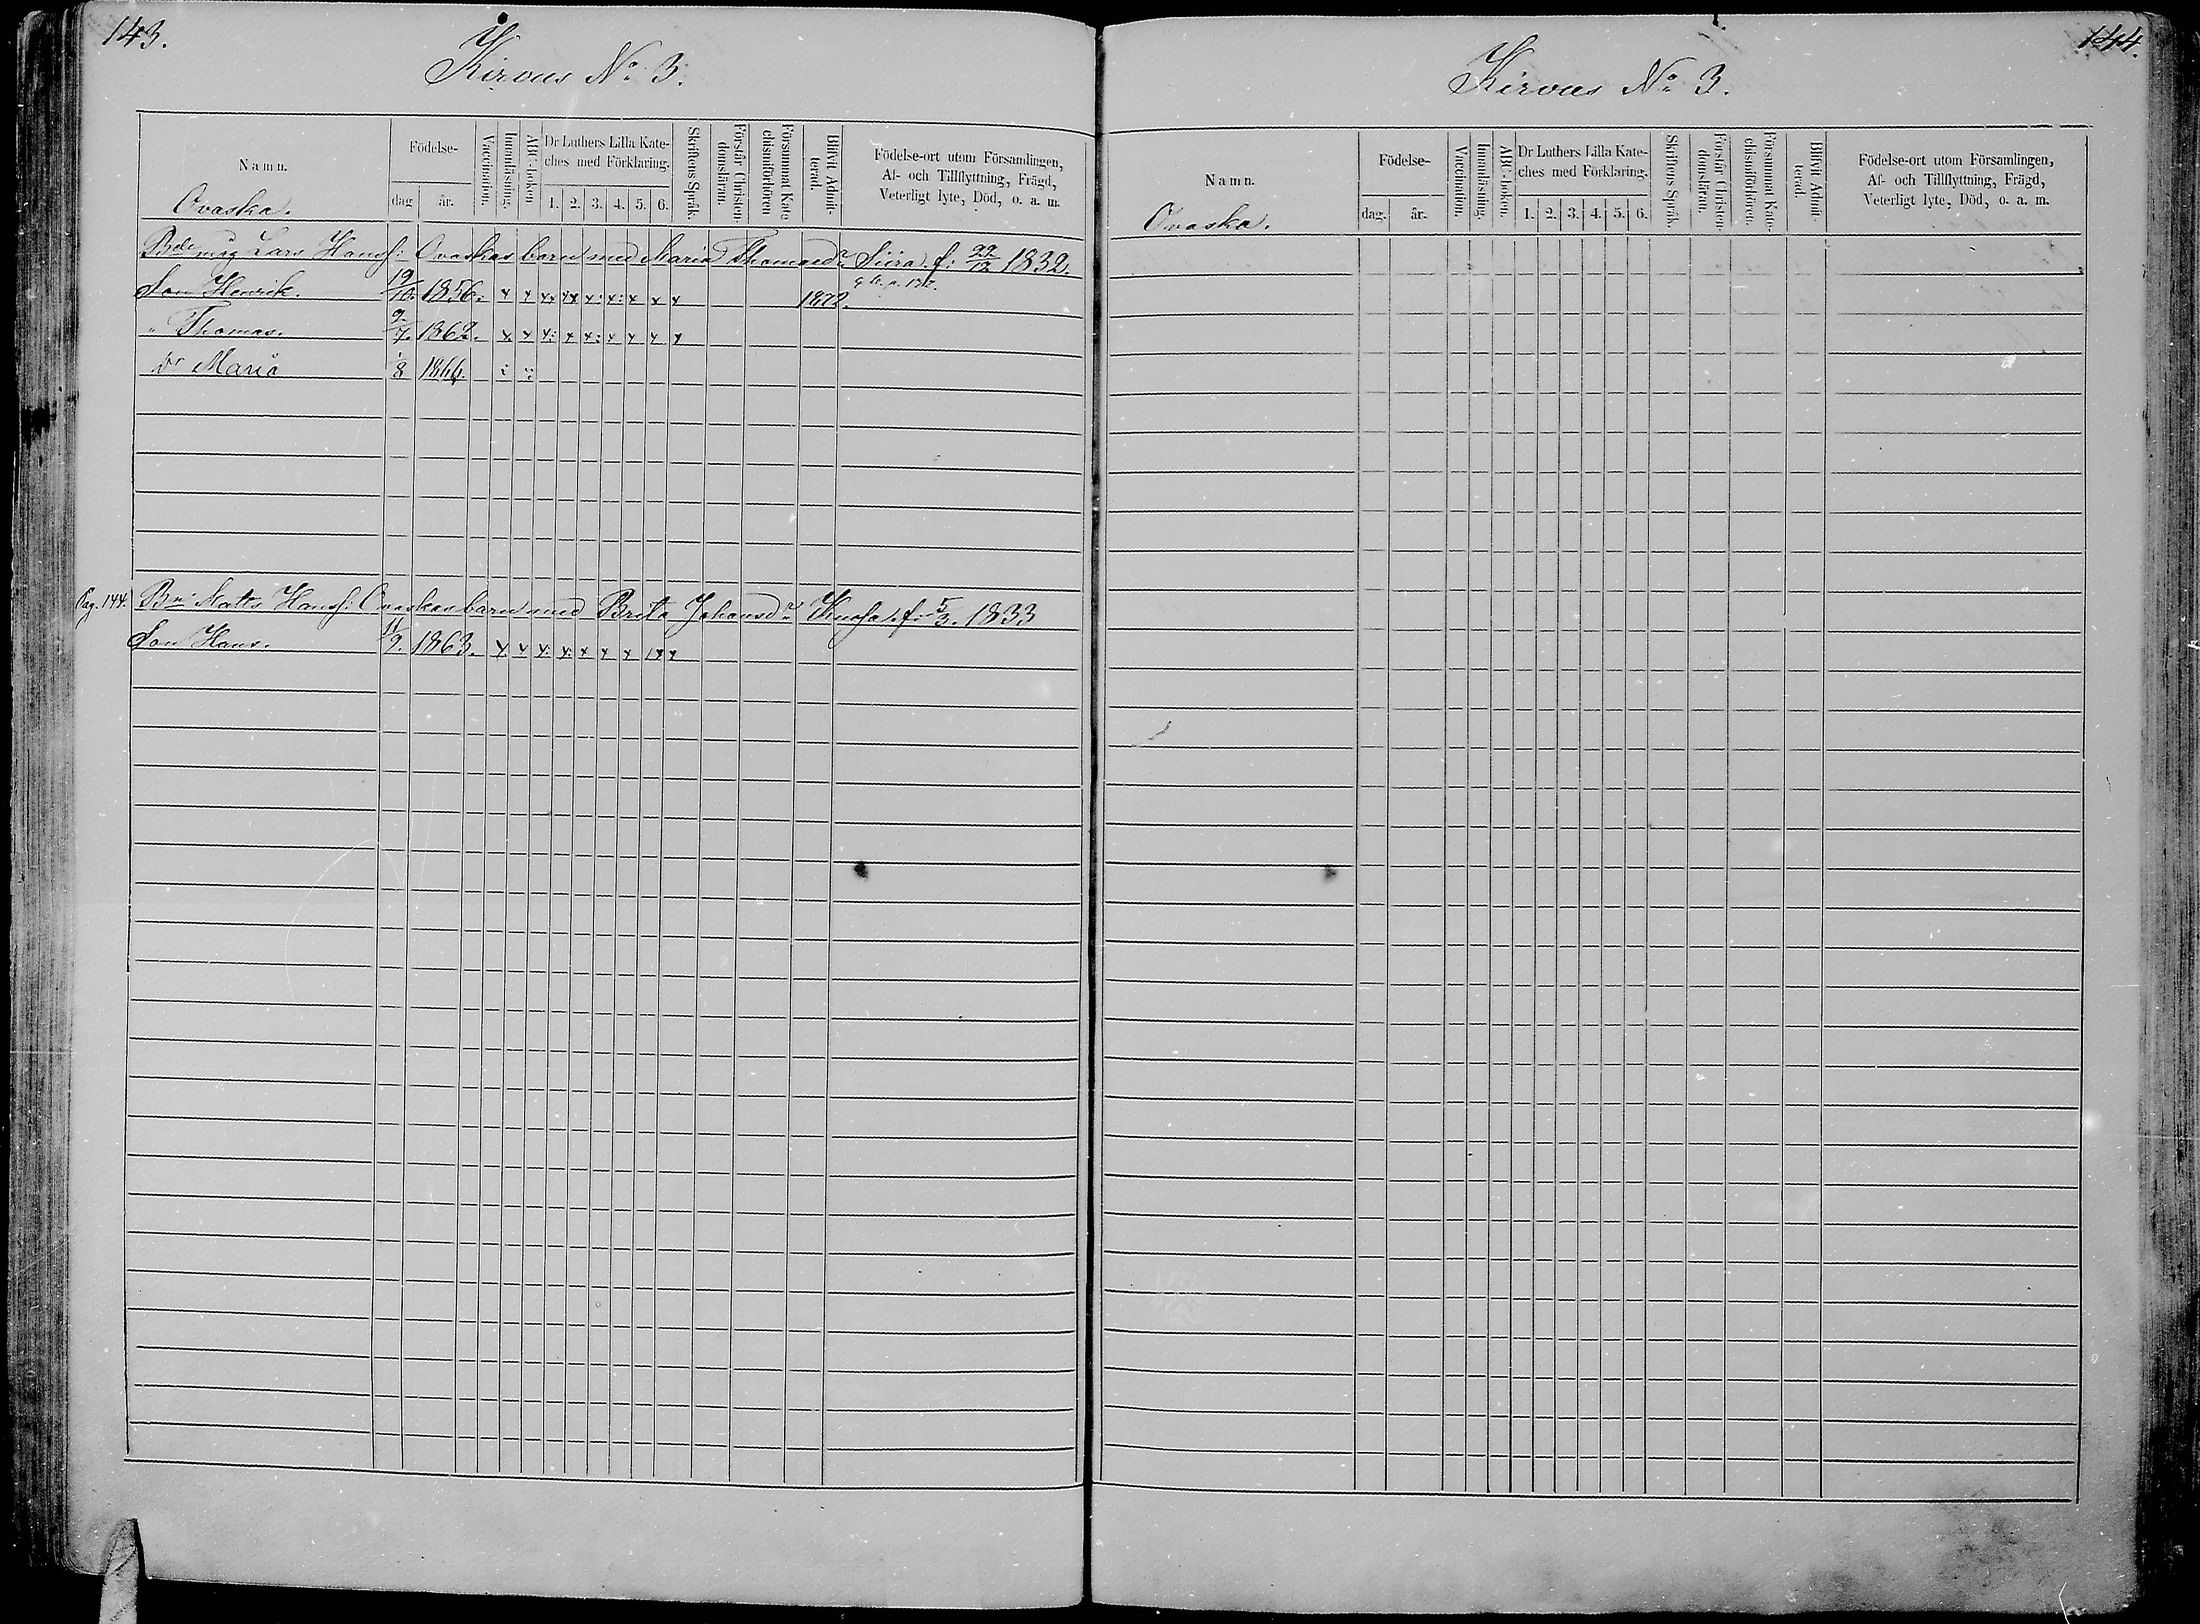 143.
Kirvus No 3.
Namn.
Födelse-
dag
år.
Vaccination.
Innanläsning.
ABC-boken
Dr Luthers Lilla Kate-
ches med Förklaring.
1. 2. 3. 4. 5. 6.
Skriftens Språk.
Förstår Christen-
domsläran.
Försummat Kate-
chismiförhören
Blifvit Admit-
terad.
Födelse-ort utom Församlingen,
Af- och Tillflyttning, Frägd,
Veterligt lyte, Död, o. a. m.
Ovaska.
Lars Hanss: Ovaskas barn med Maria Thomasdr Siira. f: 22/12 1832.
Son Henrik. 19/10. 1856. x x x x x x x x x 1872.
" Thomas. 9/7. 1862. x x x x x x x x x
Dr Maria 1/8 1866.
Pag. 144. Bn Matts Hanss: Ovaskas barn med Brita Johansdr f. 5/3. 1833
Son Hans. 11/9. 1863. x x x x x x x x x
144.
Kirvus No 3.
Namn.
Födelse-
dag.
år.
Vaccination.
Innanläsning.
ABC-boken.
Dr Luthers Lilla Kate-
ches med Förklaring.
1. 2. 3. 4. 5. 6.
Skriftens Språk.
Förstår Christen-
domsläran.
Försummat Kate-
chismiförhören.
Blifvit Admit-
terad.
Födelse-ort utom Församlingen,
Af- och Tillflyttning, Frägd,
Veterligt lyte, Död, o. a. m.
Ovaska.